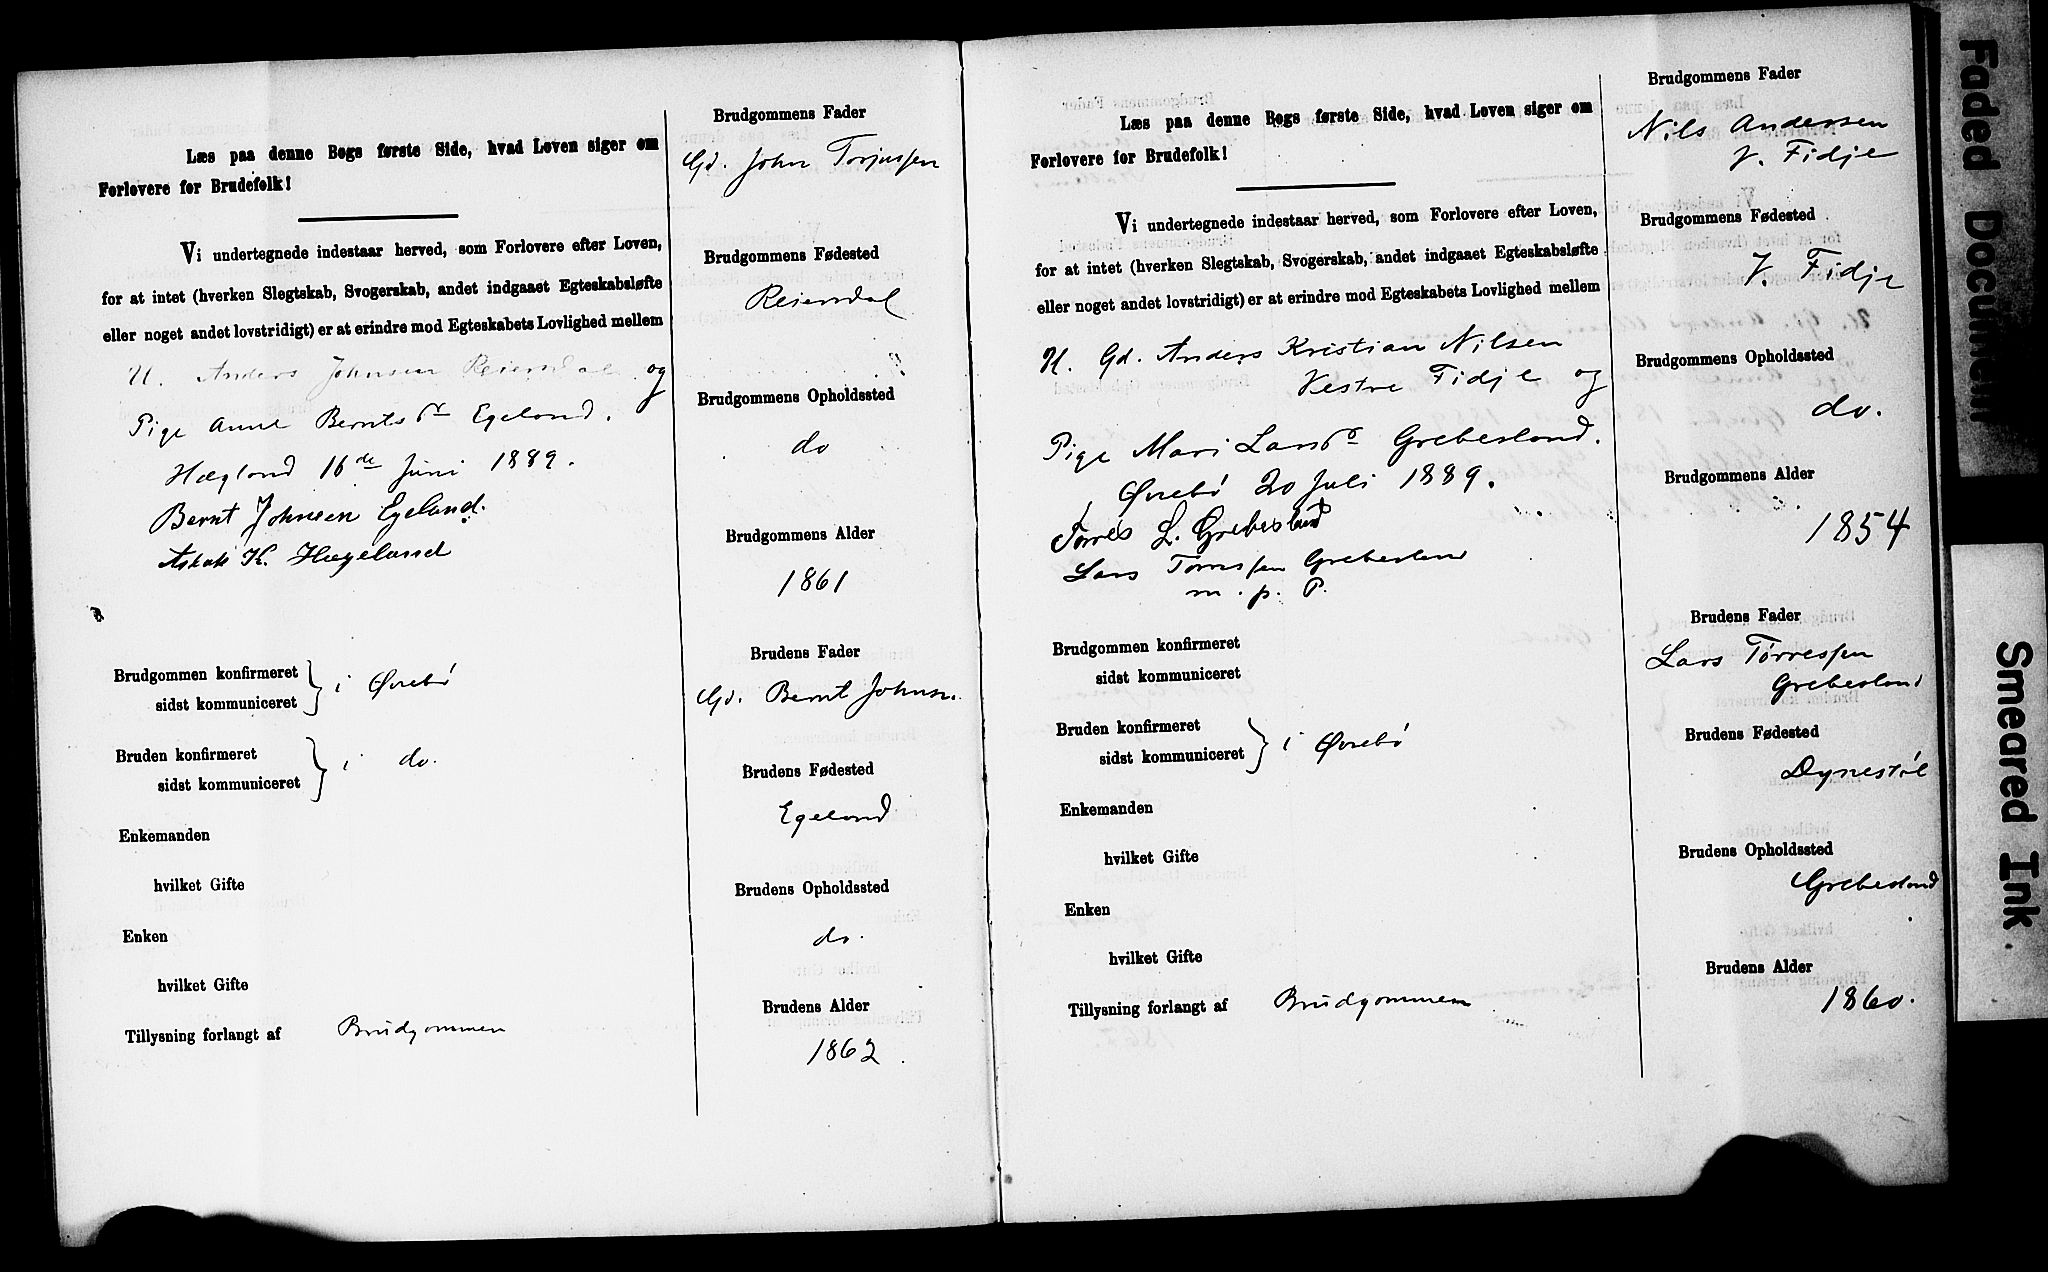 Læs paa denne Bogs første Side, hvad Loven siger om
Forlovere for Brudefolk!
Vi undertegnede indestaar herved, som Forlovere efter Loven,
for at intet (hverken Slegtskab, Svogerskab, andet indgaaet Egteskabsløfte
eller noget andet lovstridigt) er at erindre mod Egteskabets Lovlighed mellem
U. Anders Johnsen Reiersdal og
Pige Anne Berntsdr Egeland.
Hægland 16de Juni 1889.
Bernt Johnsen Egeland.
K. Hægeland
Brudgommen konfirmeret
sidst kommuniceret } i Øvrebø
Bruden konfirmeret
sidst kommuniceret } i do.
Enkemanden
hvilket Gifte
Enken
hvilket Gifte
Tillysning forlangt af Brudgommen
Brudgommens Fader
Gd. John Torjussen
Brudgommens Fødested
Reiersdal
Brudgommens Opholdssted
do
Brudgommens Alder
1861
Brudens Fader
Gd. Bernt Johns.
Brudens Fødested
Egeland
Brudens Opholdssted
do.
Brudens Alder
1862
Læs paa denne Bogs første Side, hvad Loven siger om
Forlovere for Brudefolk!
Vi undertegnede indestaar herved, som Forlovere efter Loven,
for at intet (hverken Slegtskab, Svogerskab, andet indgaaet Egteskabsløfte
eller noget andet lovstridigt) er at erindre mod Egteskabets Lovlighed mellem
U. Gd. Anders Kristian Nilsen
Vestre Fidje og
Pige Mari Larsd Grebesland.
Øvrebø 20 Juli 1889.
Tørres L. Grebesland
Lars Tørressen Grebesland
m. p. P.
Brudgommen konfirmeret
sidst kommuniceret
Bruden konfirmeret
sidst kommuniceret } i Øvrebø
Enkemanden
hvilket Gifte
Enken
hvilket Gifte
Tillysning forlangt af Brudgommen
Brudgommens Fader
Nils Andersen
V. Fidje
Brudgommens Fødested
V. Fidje
Brudgommens Opholdssted
do.
Brudgommens Alder
1854
Brudens Fader
Lars Tørressen
Grebesland
Brudens Fødested
Dynestøl
Brudens Opholdssted
Grebesland
Brudens Alder
1860.
Faded Document
Smeared Ink